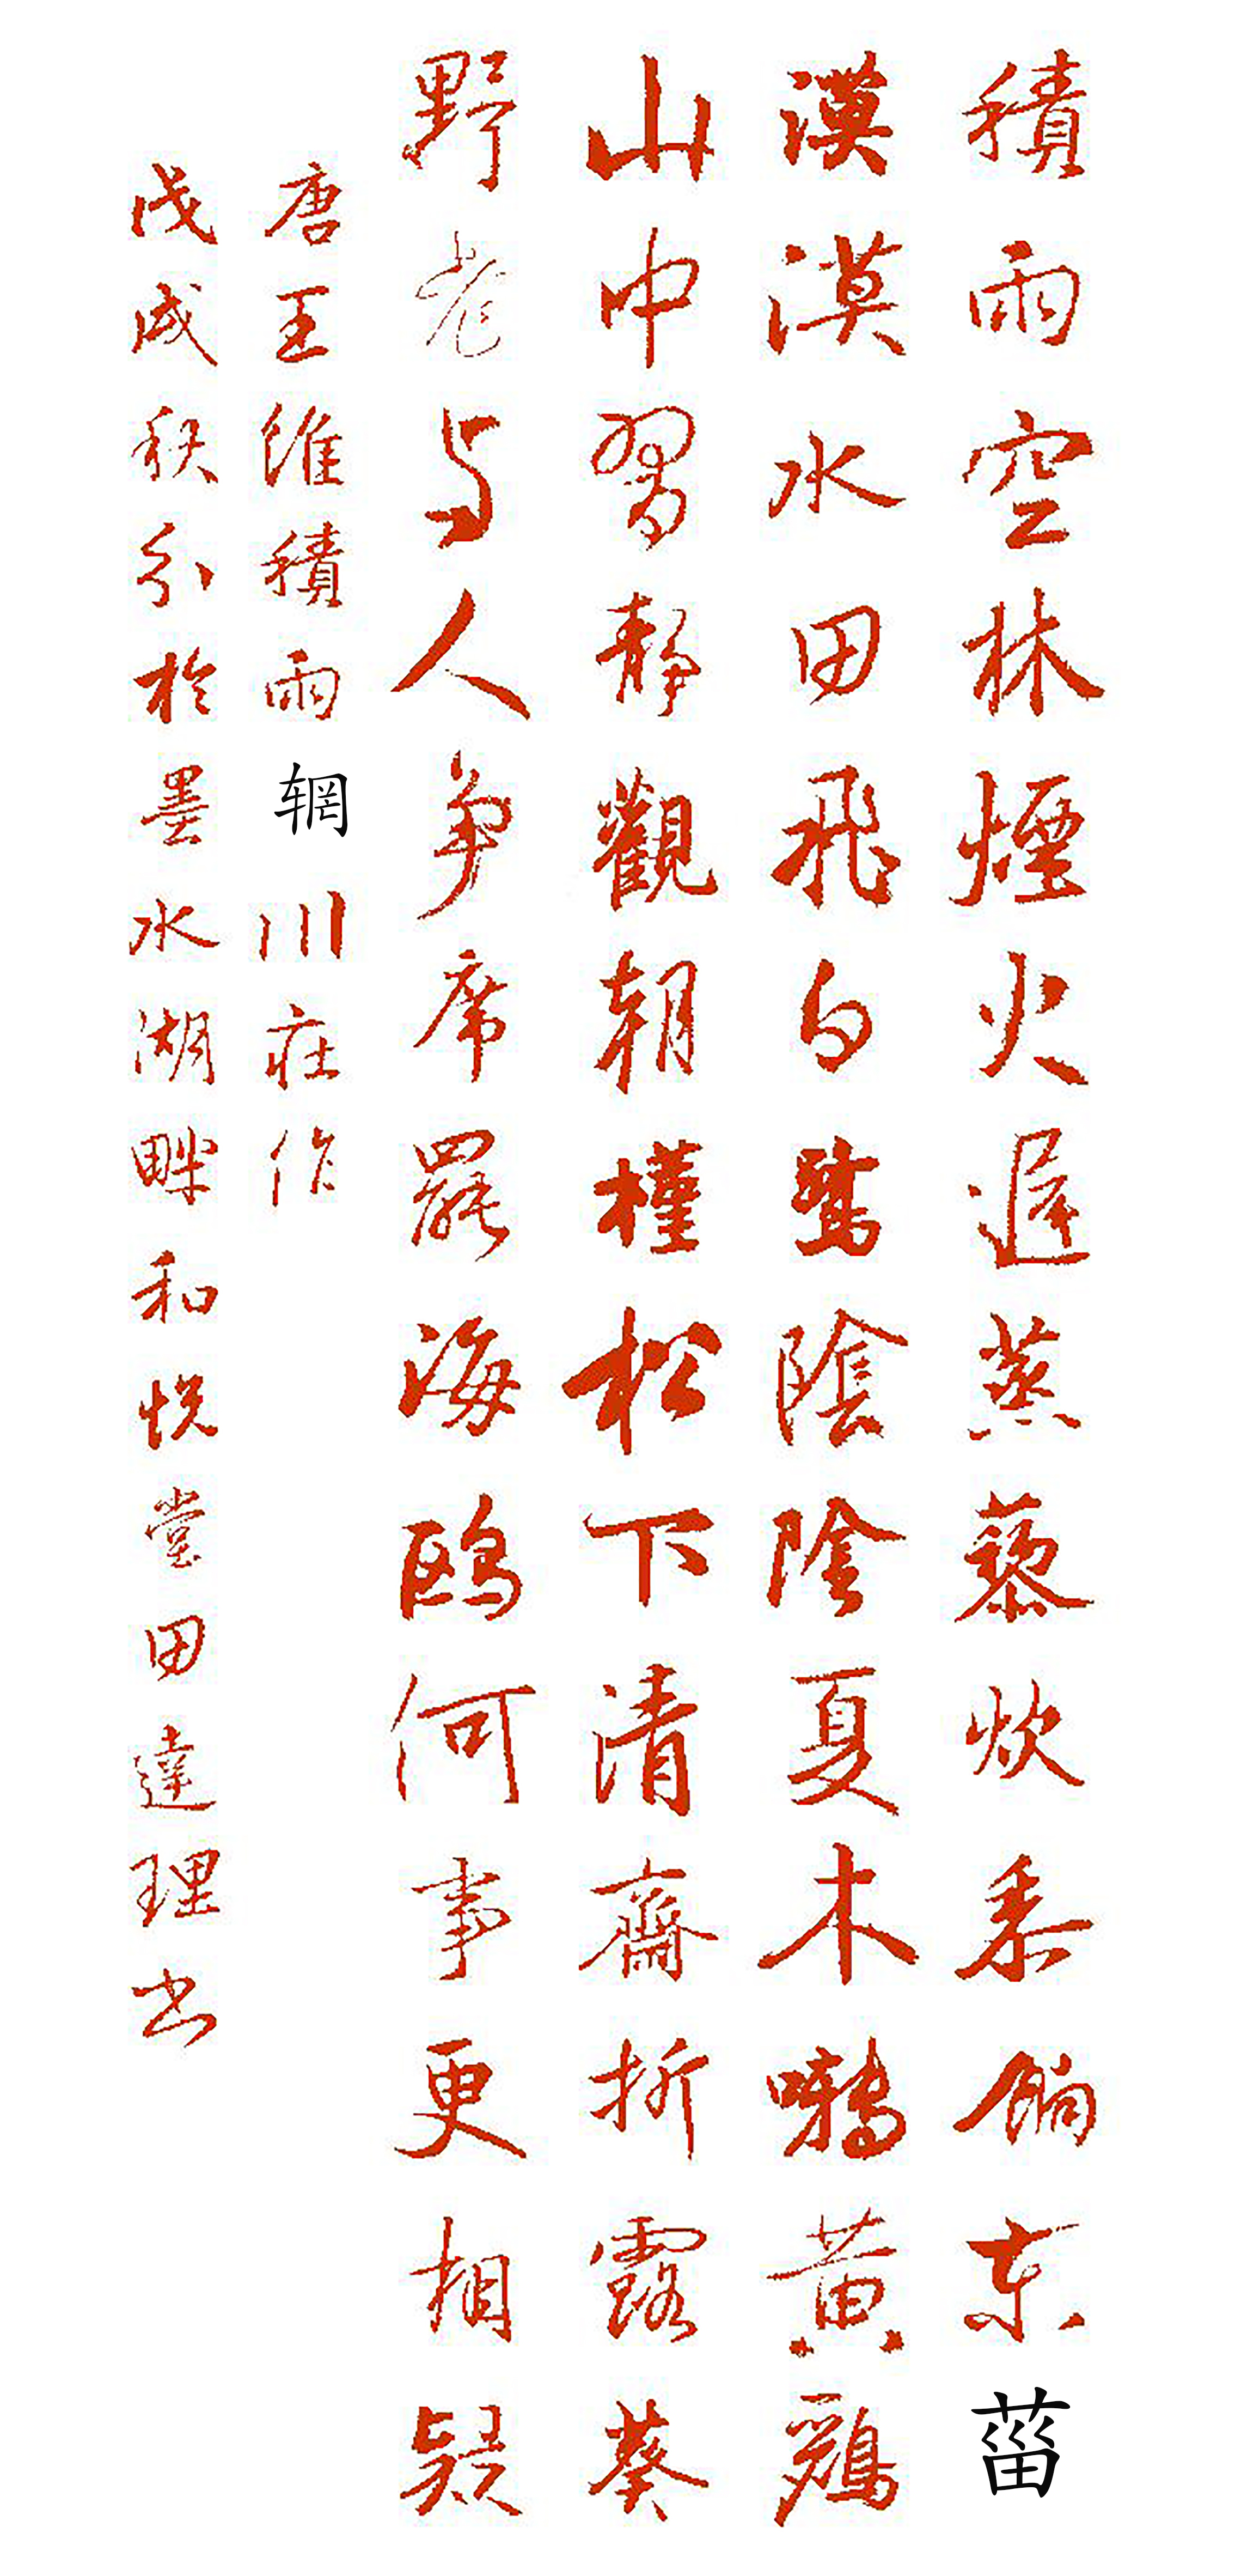 積雨空林煙火遲蒸藜炊黍餉東菑
漠漠水田飛白鷺陰陰夏木囀黄鸝
山中習靜觀朝槿松下清齋折露葵
野老与人爭席罷海鷗何事更相疑
唐王維積雨辋川莊作
戊戌秋分於墨水湖畔和悦堂田達理书